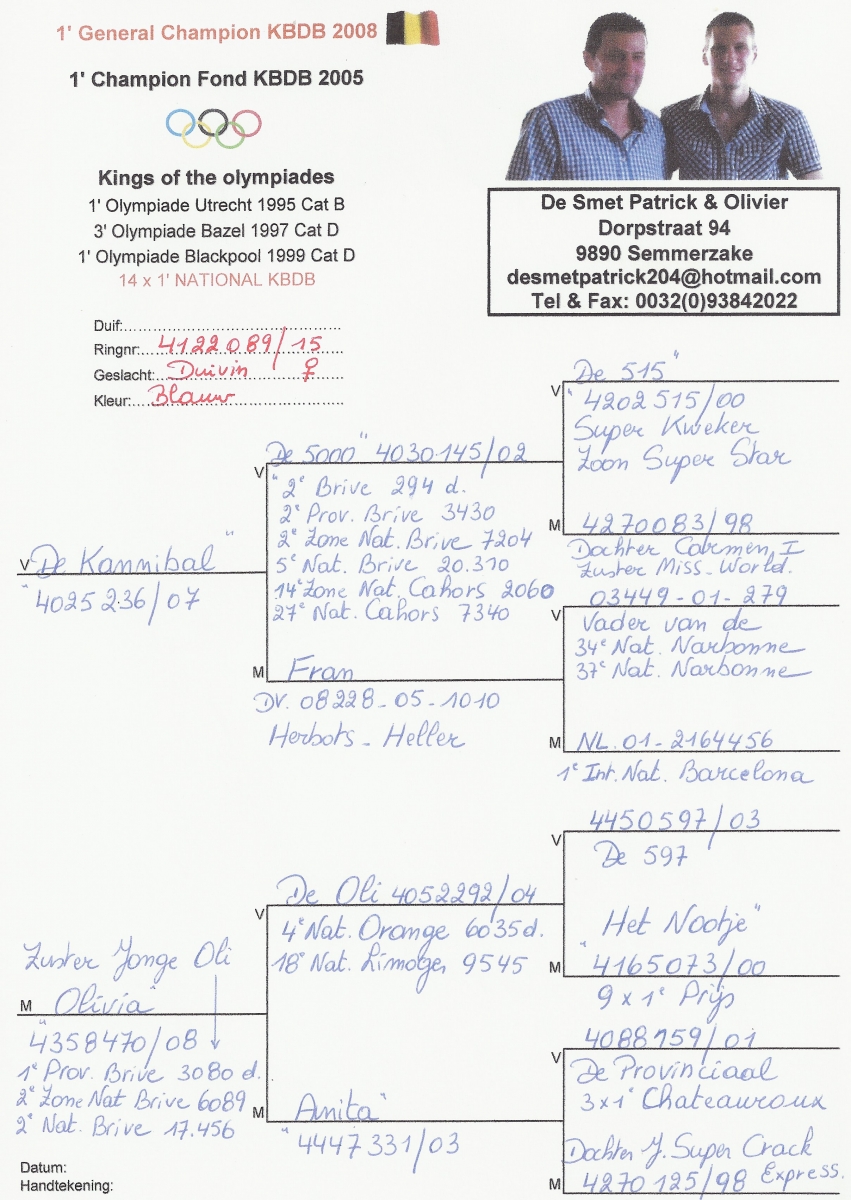 1' General Champion KBDB 2008
1' Champion Fond KBDB 2005
Kings of the olympiades
1' Olympiade Utrecht 1995 Cat B
3' Olympiade Bazel 1997 Cat D
1' Olympiade Blackpool 1999 Cat D
14 x 1' NATIONAL KBDB
De Smet Patrick & Olivier
Dorpstraat 94
9890 Semmerzake
desmetpatrick204@hotmail.com
Tel & Fax: 0032(0)93842022
Duif:
Ringnr: 4122089/15
Geslacht: Duivin ♀
Kleur: Blauw
V "De Kannibal"
4025236/07
V "De 5000" 4030145/02
2e Brive 294 d.
2e Prov. Brive 3430
2e Zone Nat. Brive 7204
5e Nat. Brive 20.310
14e Zone Nat. Cahors 2060
27e Nat. Cahors 7340
M Fran
DV. 08228-05-1010
Herbots - Heller
"De 515"
V 4202515/00
Super Kweker
Zoon Super Star
M 4270083/98
Dochter Carmen I
Zuster Miss-World.
03449-01-279
V Vader van de
34e Nat. Narbonne
37e Nat. Narbonne
M NL.01-2164456
1e Int. Nat. Barcelona
Zuster Jonge Oli
M "Olivia"
4358470/08
1e Prov. Brive 3080 d.
2e Zone Nat Brive 6089
2e Nat. Brive 17.456
V De Oli 4052292/04
4e Nat. Orange 6035 d.
18e Nat. Limoges 9545
M "Anita"
4447331/03
4450597/03
V De 597
"Het Nootje"
M 4165073/00
9 x 1e Prijs
4088159/01
V De Provinciaal
3x1e Chateauroux
Dochter J. Super Crack
M 4270125/98 Express.
Datum:
Handtekening: